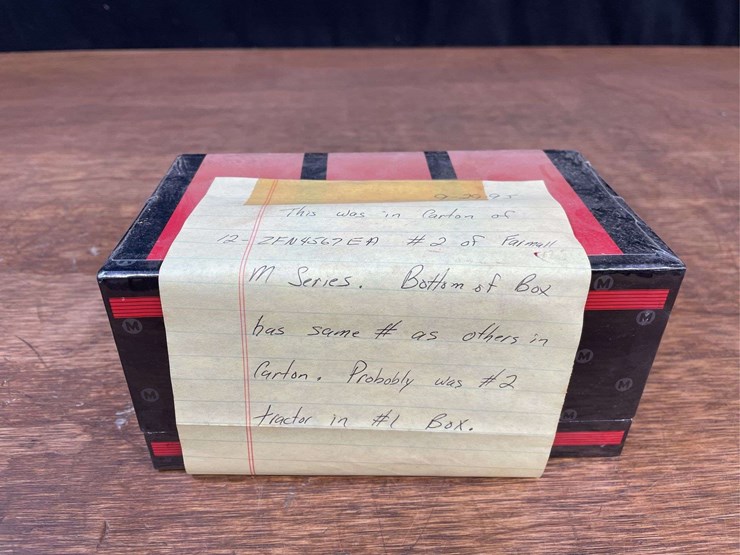 9-29-95
This was in Carton of
12-ZFN4567EA #2 of Farmall
M Series. Bottom of Box
has same # as others in
Carton. Probobly was #2
tractor in #1 Box.
M
M
M
M
M
M